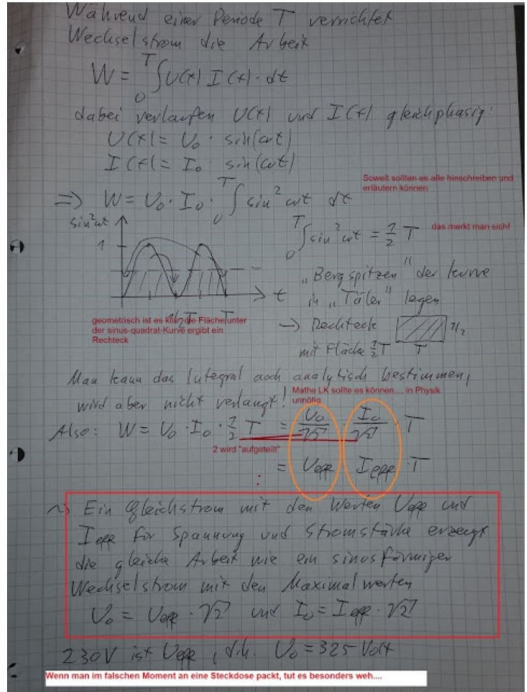 Während einer Periode T verrichtet
Wechselstrom die Arbeit
W = ₀∫ᵀ U(t) I(t) · dt
dabei verlaufen U(t) und I(t) gleichphasig:
U(t) = U₀ · sin(ωt)
I(t) = I₀ · sin(ωt)
Soweit sollten es alle hinschreiben und
erläutern können
⇒ W = U₀ · I₀ · ₀∫ᵀ sin² ωt dt
sin² ωt
1
t
T
₀∫ᵀ sin² ωt = 1/2 T
das merkt man sich!
"Bergspitzen" der Kurve
in "Täler" legen
→ Rechteck 1/2
mit Fläche 1/2 T T
geometrisch ist es klar, die Fläche unter
der sinus-quadrat-Kurve ergibt ein
Rechteck
Man kann das Integral auch analytisch bestimmen,
wird aber nicht verlangt!
Mathe LK sollte es können.... in Physik
unnötig
Also: W = U₀ · I₀ · 1/2 T = U₀/√2 · I₀/√2 · T
2 wird "aufgeteilt"
= Ueff · Ieff · T
:
Ein Gleichstrom mit den Werten Ueff und
Ieff für Spannung und Stromstärke erzeugt
die gleiche Arbeit wie ein sinusförmiger
Wechselstrom mit den Maximalwerten
U₀ = Ueff · √2 und I₀ = Ieff · √2
230V ist Ueff, d.h. U₀ = 325 Volt
Wenn man im falschen Moment an eine Steckdose packt, tut es besonders weh....